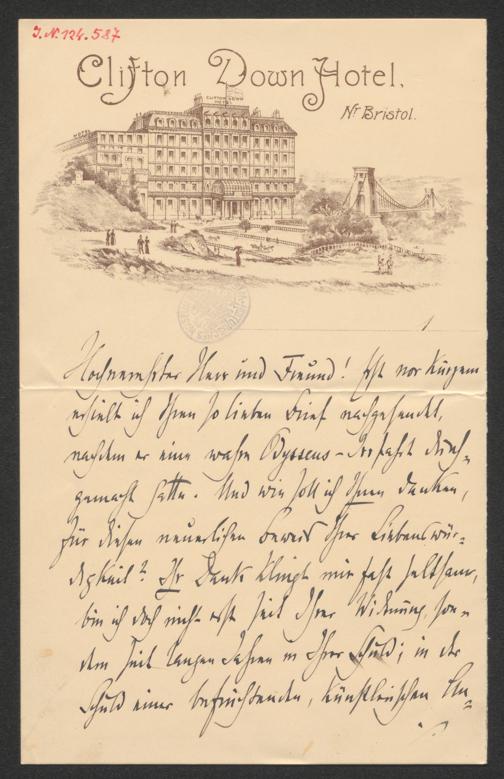 I.N. 124.587
Clifton Down Hotel.
Nr Bristol.
CLIFTON DOWN
HOTEL
1
Hochverehrter Herr und Freund! Erst vor Kurzem
erhielt ich Ihren so lieben Brief nachgesendet,
nachdem er eine wahre Odysseus-Irrfahrt durch-
gemacht hatte. Und wie soll ich Ihnen danken,
für diesen neuerlichen Beweis Ihrer Liebenswür-
digkeit? Ihr Dank klingt mir fast seltsam,
bin ich doch nicht erst seit Ihrer Widmung, son-
dern seit langen Jahren in Ihrer Schuld; in der
Schuld einer befruchtenden, künstlerischen An-